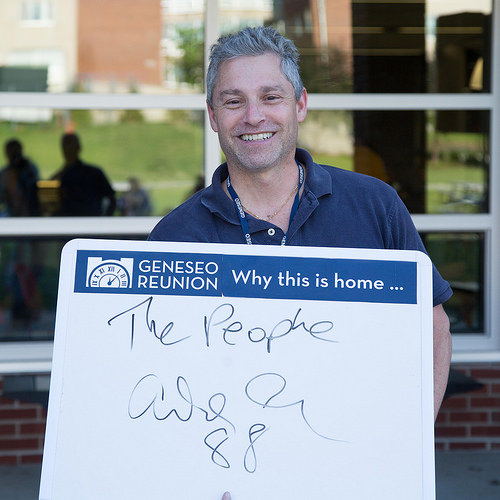 GENESEO
REUNION
Why this is home ...
The People
88